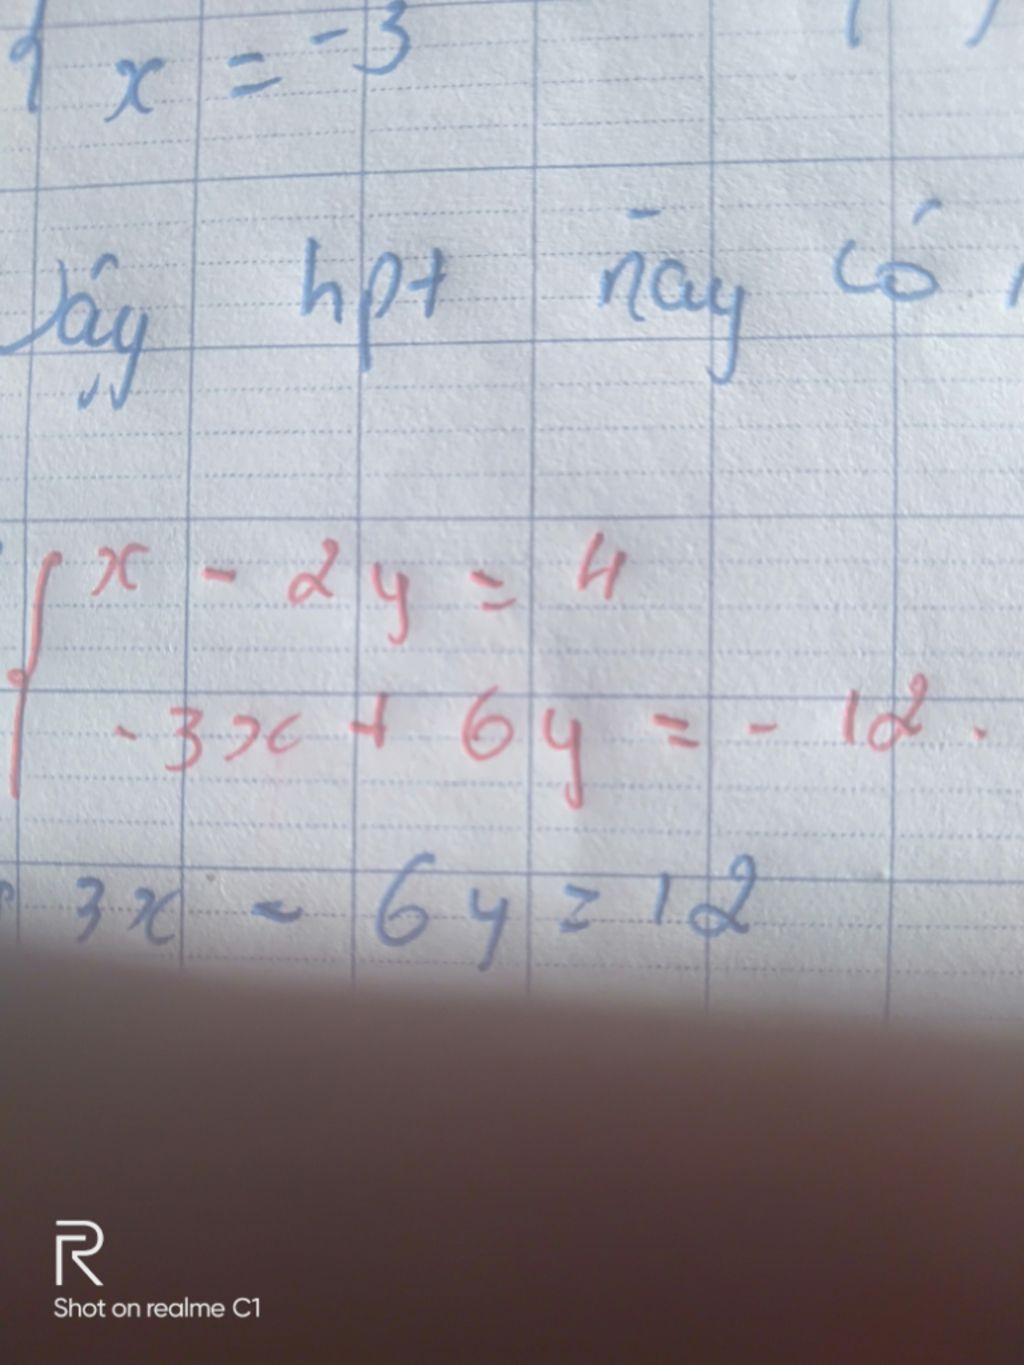 x = -3
Vậy hpt này có
x - 2y = 4
-3x + 6y = -12.
3x - 6y = 12
R
Shot on realme C1